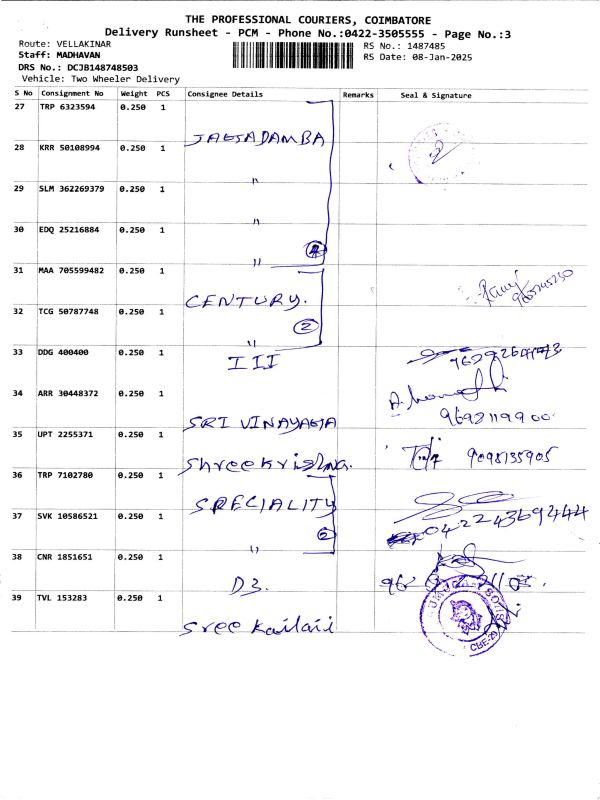 THE PROFESSIONAL COURIERS, COIMBATORE
Delivery Runsheet - PCM - Phone No.:0422-3505555 - Page No.:3
Route: VELLAKINAR
RS No.: 1487485
Staff: MADHAVAN
RS Date: 08-Jan-2025
DRS No.: DCJB148748503
Vehicle: Two Wheeler Delivery
S No Consignment No Weight PCS Consignee Details Remarks Seal & Signature
27 TRP 6323594 0.250 1
JAGADAMBA
28 KRR 50108994 0.250 1
"
29 SLM 362269379 0.250 1
"
30 EDQ 25216884 0.250 1
" 4
31 MAA 705599482 0.250 1
CENTURY.
32 TCG 50787748 0.250 1
" 2
33 DDG 400400 0.250 1
III
34 ARR 30448372 0.250 1
SRI VINAYAGA 9692119900
35 UPT 2255371 0.250 1
Shreekrishna. 9098135905
36 TRP 7102780 0.250 1
SPECIALITY
37 SVK 10586521 0.250 1
" 2 04224369444
38 CNR 1851651 0.250 1
D3.
39 TVL 153283 0.250 1
Sree Kailaii